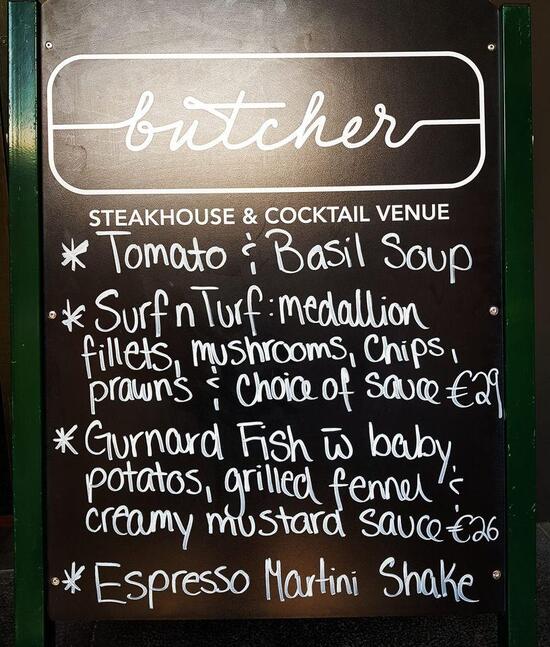 butcher
STEAKHOUSE & COCKTAIL VENUE
* Tomato & Basil Soup
* Surf n Turf: medallion
fillets, mushrooms, Chips,
prawns & choice of sauce €29
* Gurnard Fish w̄ baby
potatos, grilled fennel &
creamy mustard sauce €26
* Espresso Martini Shake